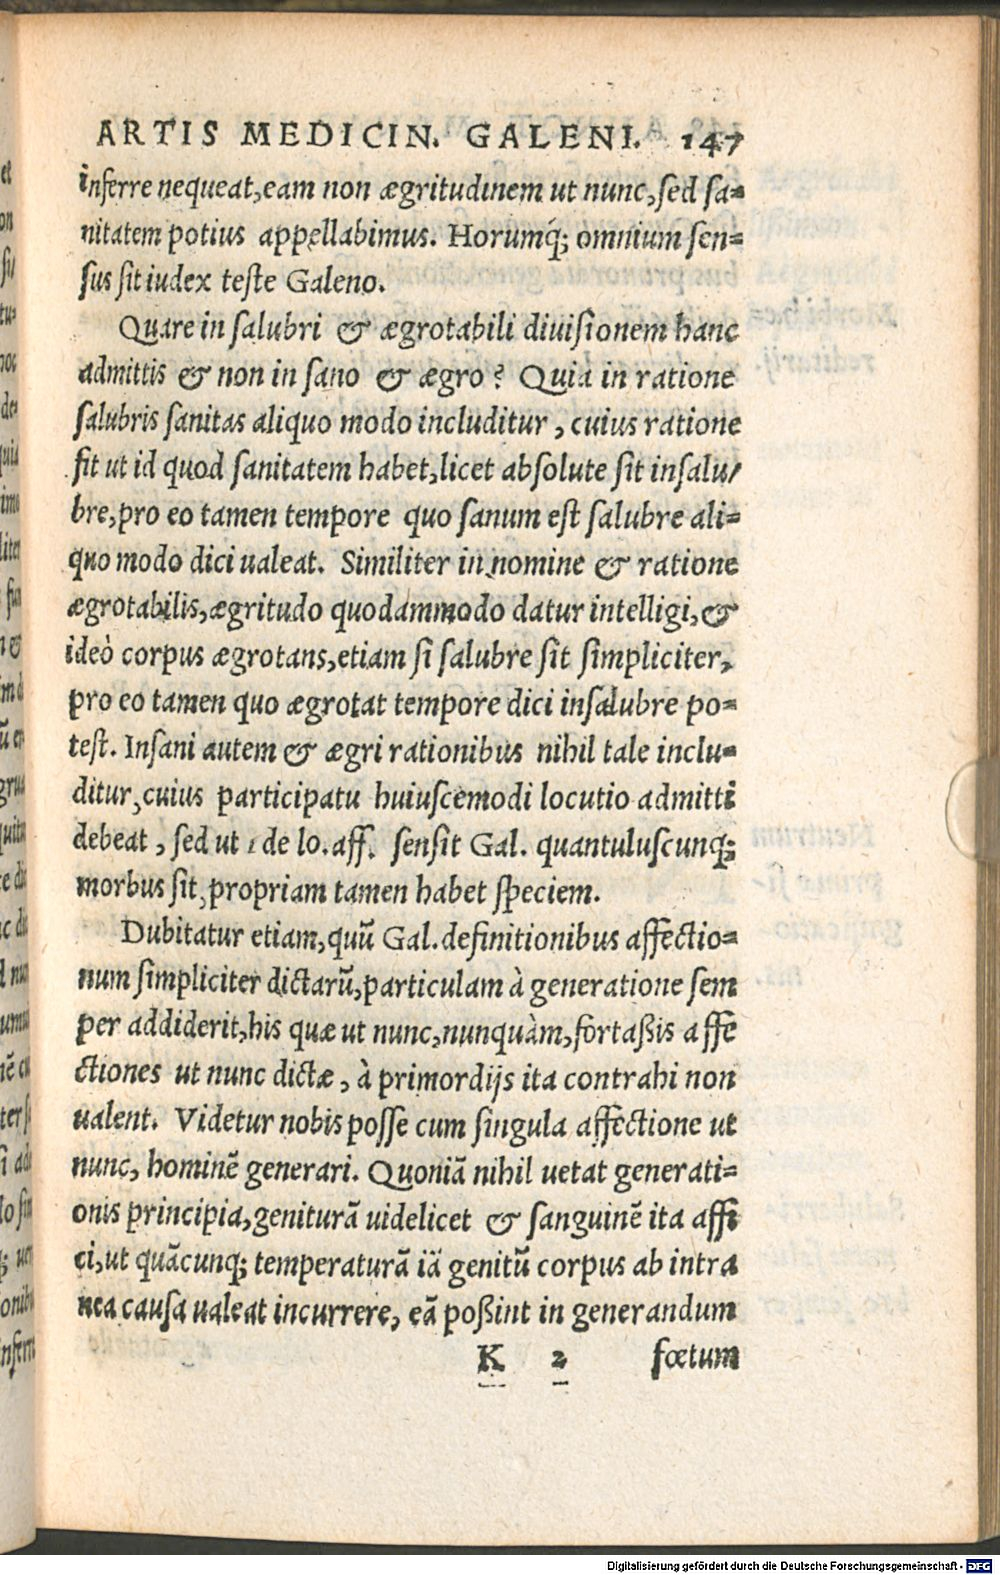 ARTIS MEDICIN. GALENI. 147
inferre nequeat, eam non ægritudinem ut nunc, sed sa=
nitatem potius appellabimus. Horumq́; omnium sen=
sus sit iudex teste Galeno.
Quare in salubri & ægrotabili diuisionem hanc
admittis & non in sano & ægro? Quia in ratione
salubris sanitas aliquo modo includitur, cuius ratione
fit ut id quod sanitatem habet, licet absolute sit insalu/
bre, pro eo tamen tempore quo sanum est salubre ali=
quo modo dici ualeat. Similiter in nomine & ratione
ægrotabilis, ægritudo quodammodo datur intelligi, &
ideò corpus ægrotans, etiam si salubre sit simpliciter,
pro eo tamen quo ægrotat tempore dici insalubre po=
test. Insani autem & ægri rationibus nihil tale inclu=
ditur, cuius participatu huiuscemodi locutio admitti
debeat, sed ut 1 de lo. aff. sensit Gal. quantuluscunq;
morbus sit, propriam tamen habet speciem.
Dubitatur etiam, quũ Gal. definitionibus affectio=
num simpliciter dictarũ, particulam à generatione sem
per addiderit, his quæ ut nunc, nunquàm, fortaßis affe
ctiones ut nunc dictæ, à primordijs ita contrahi non
ualent. Videtur nobis posse cum singula affectione ut
nunc, hominẽ generari. Quoniã nihil uetat generati=
onis principia, geniturã uidelicet & sanguinẽ ita affi
ci, ut quãcunq; temperaturã iã genitũ corpus ab intra
nea causa ualeat incurrere, eã poßint in generandum
K 2 fœtum
Digitalisierung gefördert durch die Deutsche Forschungsgemeinschaft - DFG